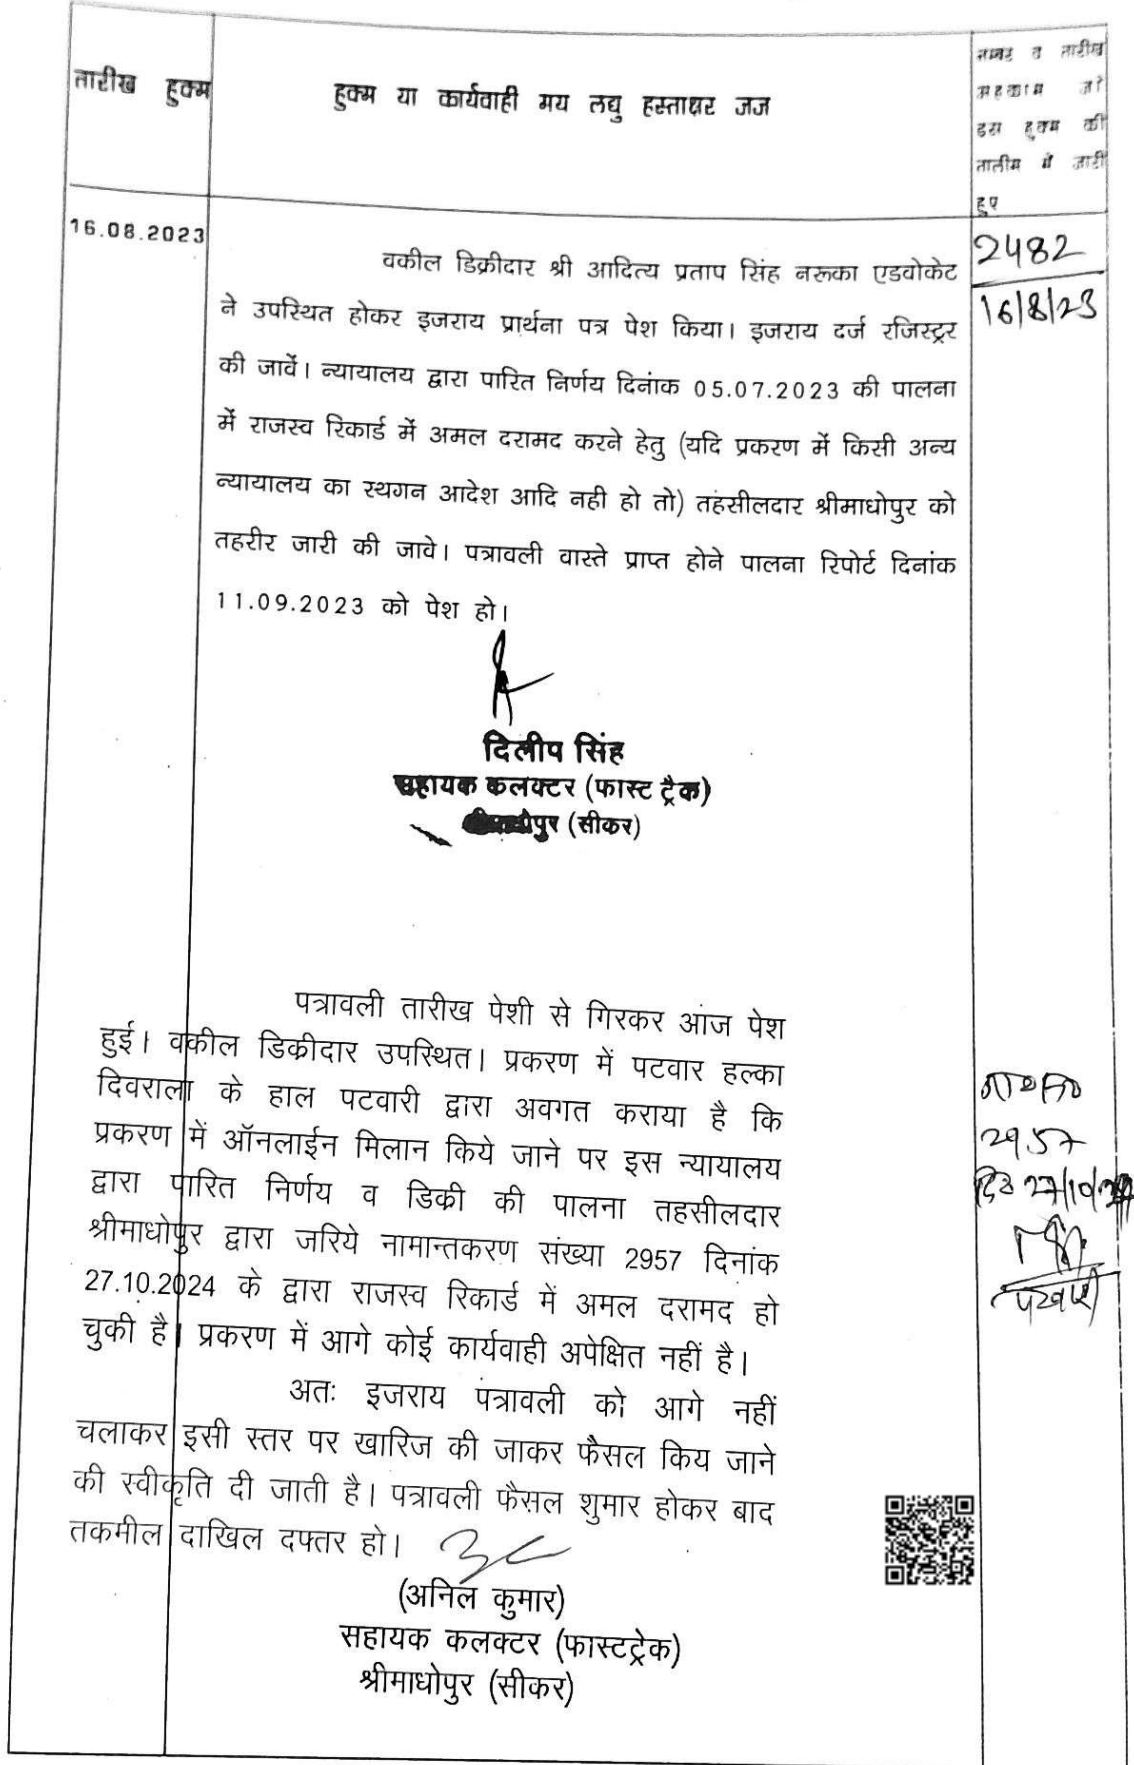 तारीख हुक्म
हुक्म या कार्यवाही मय लघु हस्ताक्षर जज
नम्बर व तारीख
अहकाम जो
इस हुक्म की
तालीम में जारी
हुए
16.08.2023
2482
16/8/23
वकील डिक्रीदार श्री आदित्य प्रताप सिंह नरूका एडवोकेट
ने उपस्थित होकर इजराय प्रार्थना पत्र पेश किया। इजराय दर्ज रजिस्ट्रर
की जावें। न्यायालय द्वारा पारित निर्णय दिनांक 05.07.2023 की पालना
में राजस्व रिकार्ड में अमल दरामद करने हेतु (यदि प्रकरण में किसी अन्य
न्यायालय का स्थगन आदेश आदि नही हो तो) तहसीलदार श्रीमाधोपुर को
तहरीर जारी की जावे। पत्रावली वास्ते प्राप्त होने पालना रिपोर्ट दिनांक
11.09.2023 को पेश हो।
दिलीप सिंह
सहायक कलक्टर (फास्ट ट्रैक)
(सीकर)
पत्रावली तारीख पेशी से गिरकर आज पेश
हुई। वकील डिक्रीदार उपस्थित। प्रकरण में पटवार हल्का
दिवराला के हाल पटवारी द्वारा अवगत कराया है कि
प्रकरण में ऑनलाईन मिलान किये जाने पर इस न्यायालय
द्वारा पारित निर्णय व डिक्री की पालना तहसीलदार
श्रीमाधोपुर द्वारा जरिये नामान्तकरण संख्या 2957 दिनांक
27.10.2024 के द्वारा राजस्व रिकार्ड में अमल दरामद हो
चुकी है। प्रकरण में आगे कोई कार्यवाही अपेक्षित नहीं है।
अतः इजराय पत्रावली को आगे नहीं
चलाकर इसी स्तर पर खारिज की जाकर फैसल किय जाने
की स्वीकृति दी जाती है। पत्रावली फैसल शुमार होकर बाद
तकमील दाखिल दफ्तर हो।
(अनिल कुमार)
सहायक कलक्टर (फास्टट्रेक)
श्रीमाधोपुर (सीकर)
2957
27/10/24
पटवारी